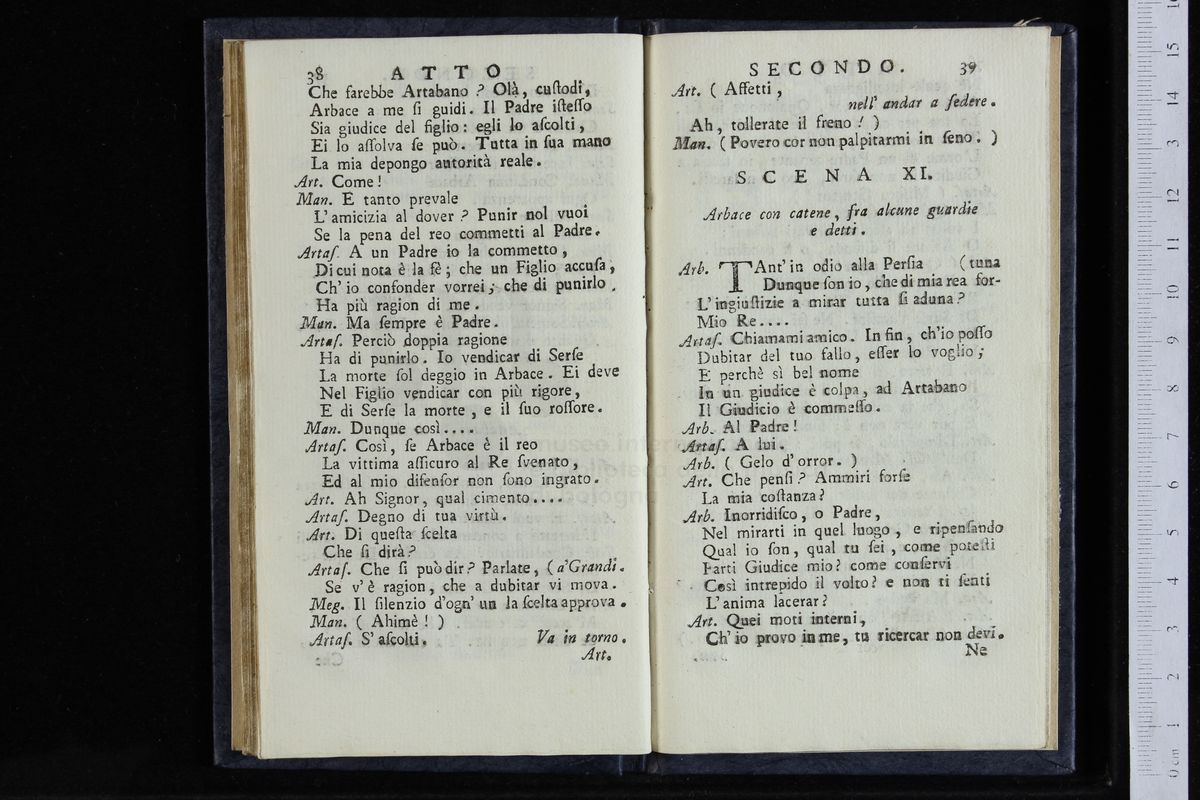 38 ATTO
Che farebbe Artabano ? Olà, cuſtodi,
Arbace a me ſi guidi. Il Padre iſteſſo
Sia giudice del figlio: egli lo aſcolti,
Ei lo aſſolva ſe può. Tutta in ſua mano
La mia depongo autorità reale.
Art. Come!
Man. E tanto prevale
L'amicizia al dover? Punir nol vuoi
Se la pena del reo commetti al Padre.
Artaſ. A un Padre io la commetto,
Di cui nota è la fè; che un Figlio accuſa,
Ch'io confonder vorrei; che di punirlo,
Ha più ragion di me.
Man. Ma ſempre è Padre.
Artaſ. Perciò doppia ragione
Ha di punirlo. Io vendicar di Serſe
La morte ſol deggio in Arbace. Ei deve
Nel Figlio vendicar con più rigore,
E di Serſe la morte, e il ſuo roſſore.
Man. Dunque così....
Artaſ. Così, ſe Arbace è il reo
La vittima aſſicuro al Re ſvenato,
Ed al mio difenſor non ſono ingrato.
Art. Ah Signor, qual cimento....
Artaſ. Degno di tua virtù.
Art. Di queſta ſcelta
Che ſi dirà?
Artaſ. Che ſi può dir? Parlate, (a'Grandi.
Se v'è ragion, che a dubitar vi mova.
Meg. Il ſilenzio d'ogn'un la ſcelta approva.
Man. ( Ahimè! )
Artaſ. S'aſcolti. Va in torno.
Art.
SECONDO. 39
Art. ( Affetti,
nell' andar a ſedere.
Ah, tollerate il freno! )
Man. (Povero cor non palpitarmi in ſeno. )
SCENA XI.
Arbace con catene, fra alcune guardie
e detti.
Arb. TAnt'in odio alla Perſia (tuna
Dunque ſon io, che di mia rea for-
L'ingiuſtizie a mirar tutta ſi aduna?
Mio Re....
Artaſ. Chiamami amico. In fin, ch'io poſſo
Dubitar del tuo fallo, eſſer lo voglio;
E perchè sì bel nome
In un giudice è colpa, ad Artabano
Il Giudicio è commeſſo.
Arb. Al Padre!
Artaſ. A lui.
Arb. ( Gelo d'orror. )
Art. Che penſi? Ammiri forſe
La mia coſtanza?
Arb. Inorridiſco, o Padre,
Nel mirarti in quel luogo, e ripenſando
Qual io ſon, qual tu ſei, come poteſti
Farti Giudice mio? come conſervi
Così intrepido il volto? e non ti ſenti
L'anima lacerar?
Art. Quei moti interni,
Ch'io provo in me, tu ricercar non devi.
Ne